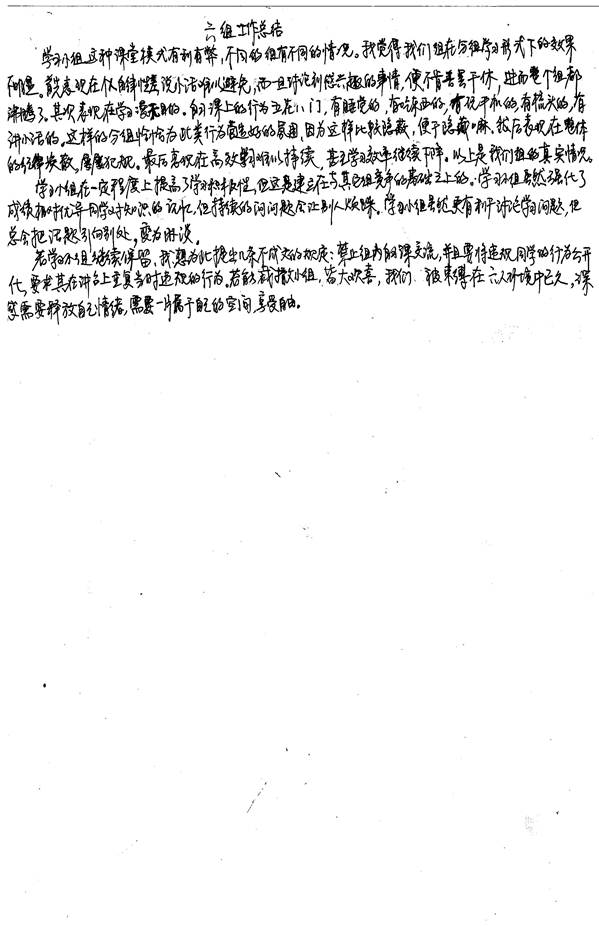 六组工作总结
学习小组这种课堂模式有利有弊,不同的组有不同的情况。我觉得我们组在分组学习形式下的效果
不理想。首先表现在个人自律性差,说小话难以避免,而一旦讨论到感兴趣的事情,便不肯善罢干休,进而整个组都
沸腾了。其次表现在学习漫无目的。自习课上的行为五花八门,有睡觉的,有吃东西的,有玩手机的,有梳头的,有
讲小话的。这样的分组恰恰为此类行为营造好的氛围,因为这样比较隐蔽,便于隐藏嘛。然后表现在整体
的纪律涣散,屡屡犯规。最后表现在高效率难以持续,甚至学习效率继续下降。以上是我们组的真实情况。
学习小组在一定程度上提高了学习积极性,但这是建立在与其它组竞争的基础之上的。学习小组虽然强化了
成绩相对优异同学对知识的记忆,但持续的问问题会让别人烦躁。学习小组虽然更有利于讨论学习问题,但
总会把话题引向别处,变为闲谈。
若学习小组继续保留,我想为此提出几条不成文的规定:禁止组内自习课交流,并且要将违规同学的行为公开
化,要求其在讲台上重复当时违规的行为。若能裁撤小组,皆大欢喜,我们 被束缚在六人环境中已久,深
感需要释放自己情绪,需要一片属于自己的空间,享受自由。